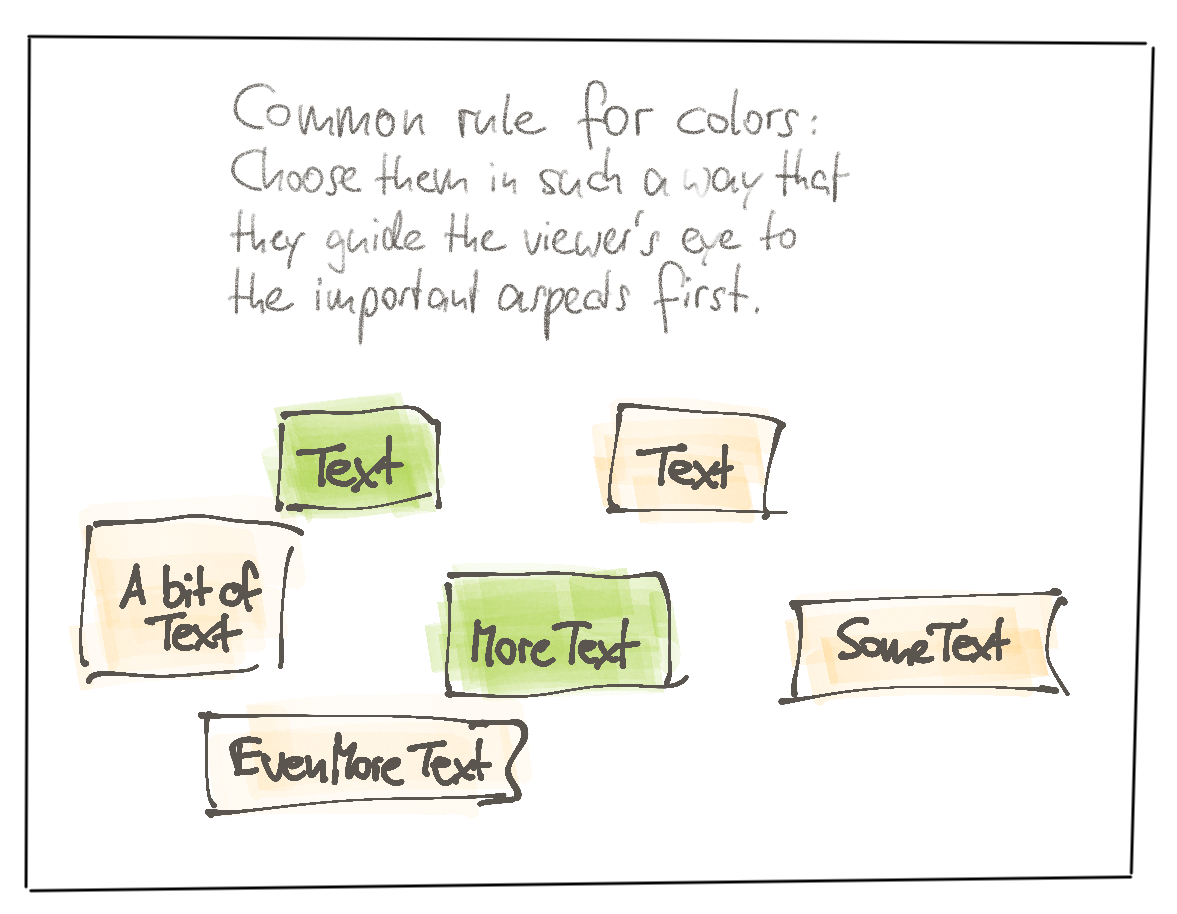 Common rule for colors:
Choose them in such a way that
they guide the viewer's eye to
the important aspects first.
Text
Text
A bit of
Text
More Text
Some Text
Even More Text